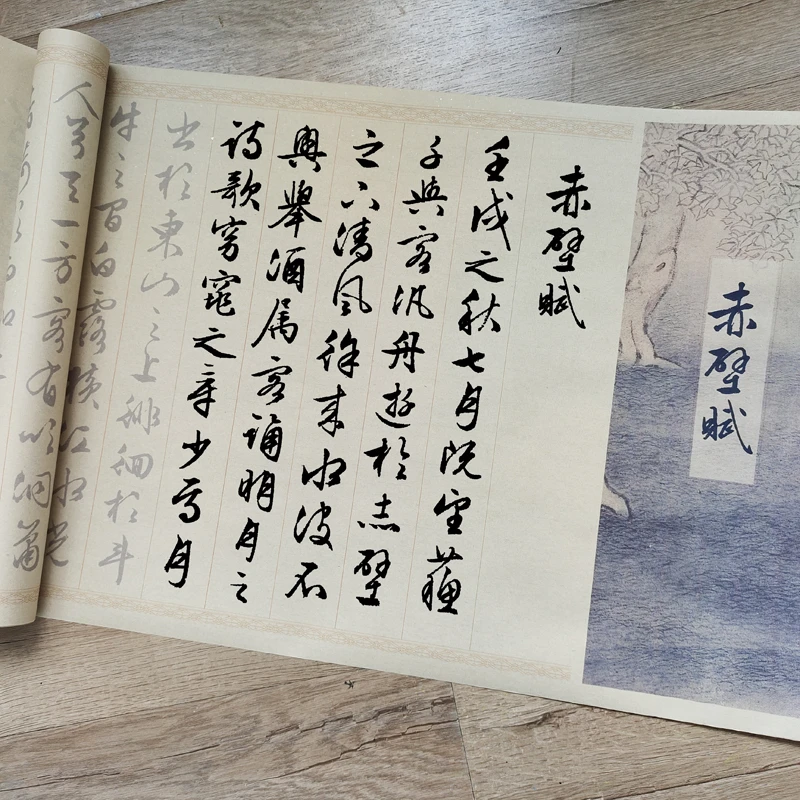 赤壁賦
赤壁賦
壬戌之秋七月既望蘇
子與客汎舟遊於赤壁
之下清風徐來水波不
興舉酒属客誦明月之
詩歌窈窕之章少焉月
出於東山之上徘徊於斗
牛之間白露横江水光
人兮天一方客有吹洞簫